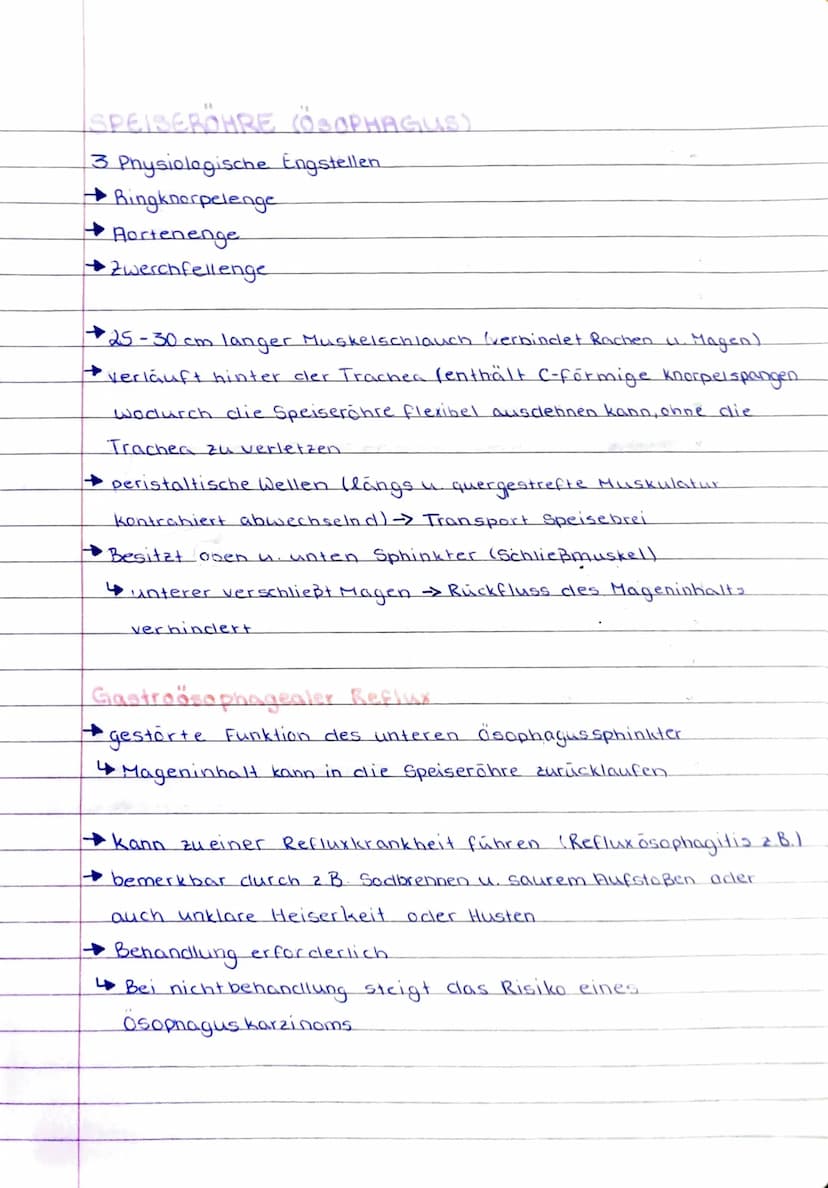 SPEISERÖHRE (ÖSOPHAGUS)
3 Physiologische Engstellen
→ Ringknorpelenge
→ Aortenenge
→ Zwerchfellenge
→ 25-30 cm langer Muskelschlauch (verbindet Rachen u. Magen)
→ verläuft hinter der Trachea (enthält C-förmige Knorpelspangen
wodurch die Speiseröhre flexibel ausdehnen kann, ohne die
Trachea zu verletzen
→ peristaltische Wellen (längs u. quergestrefte Muskulatur
kontrahiert abwechselnd) → Transport Speisebrei
→ Besitzt oben u. unten Sphinkter (Schließmuskel)
↳ unterer verschließt Magen → Rückfluss des Mageninhalts
verhindert
Gastroösophagealer Reflux
→ gestörte Funktion des unteren Ösophagussphinkter
↳ Mageninhalt kann in die Speiseröhre zurücklaufen
→ kann zu einer Refluxkrankheit führen (Refluxösophagitis z.B.)
→ bemerkbar durch z.B. Sodbrennen u. saurem Aufstoßen oder
auch unklare Heiserkeit oder Husten
→ Behandlung erforderlich
↳ Bei nichtbehandlung steigt das Risiko eines
Ösophaguskarzinoms